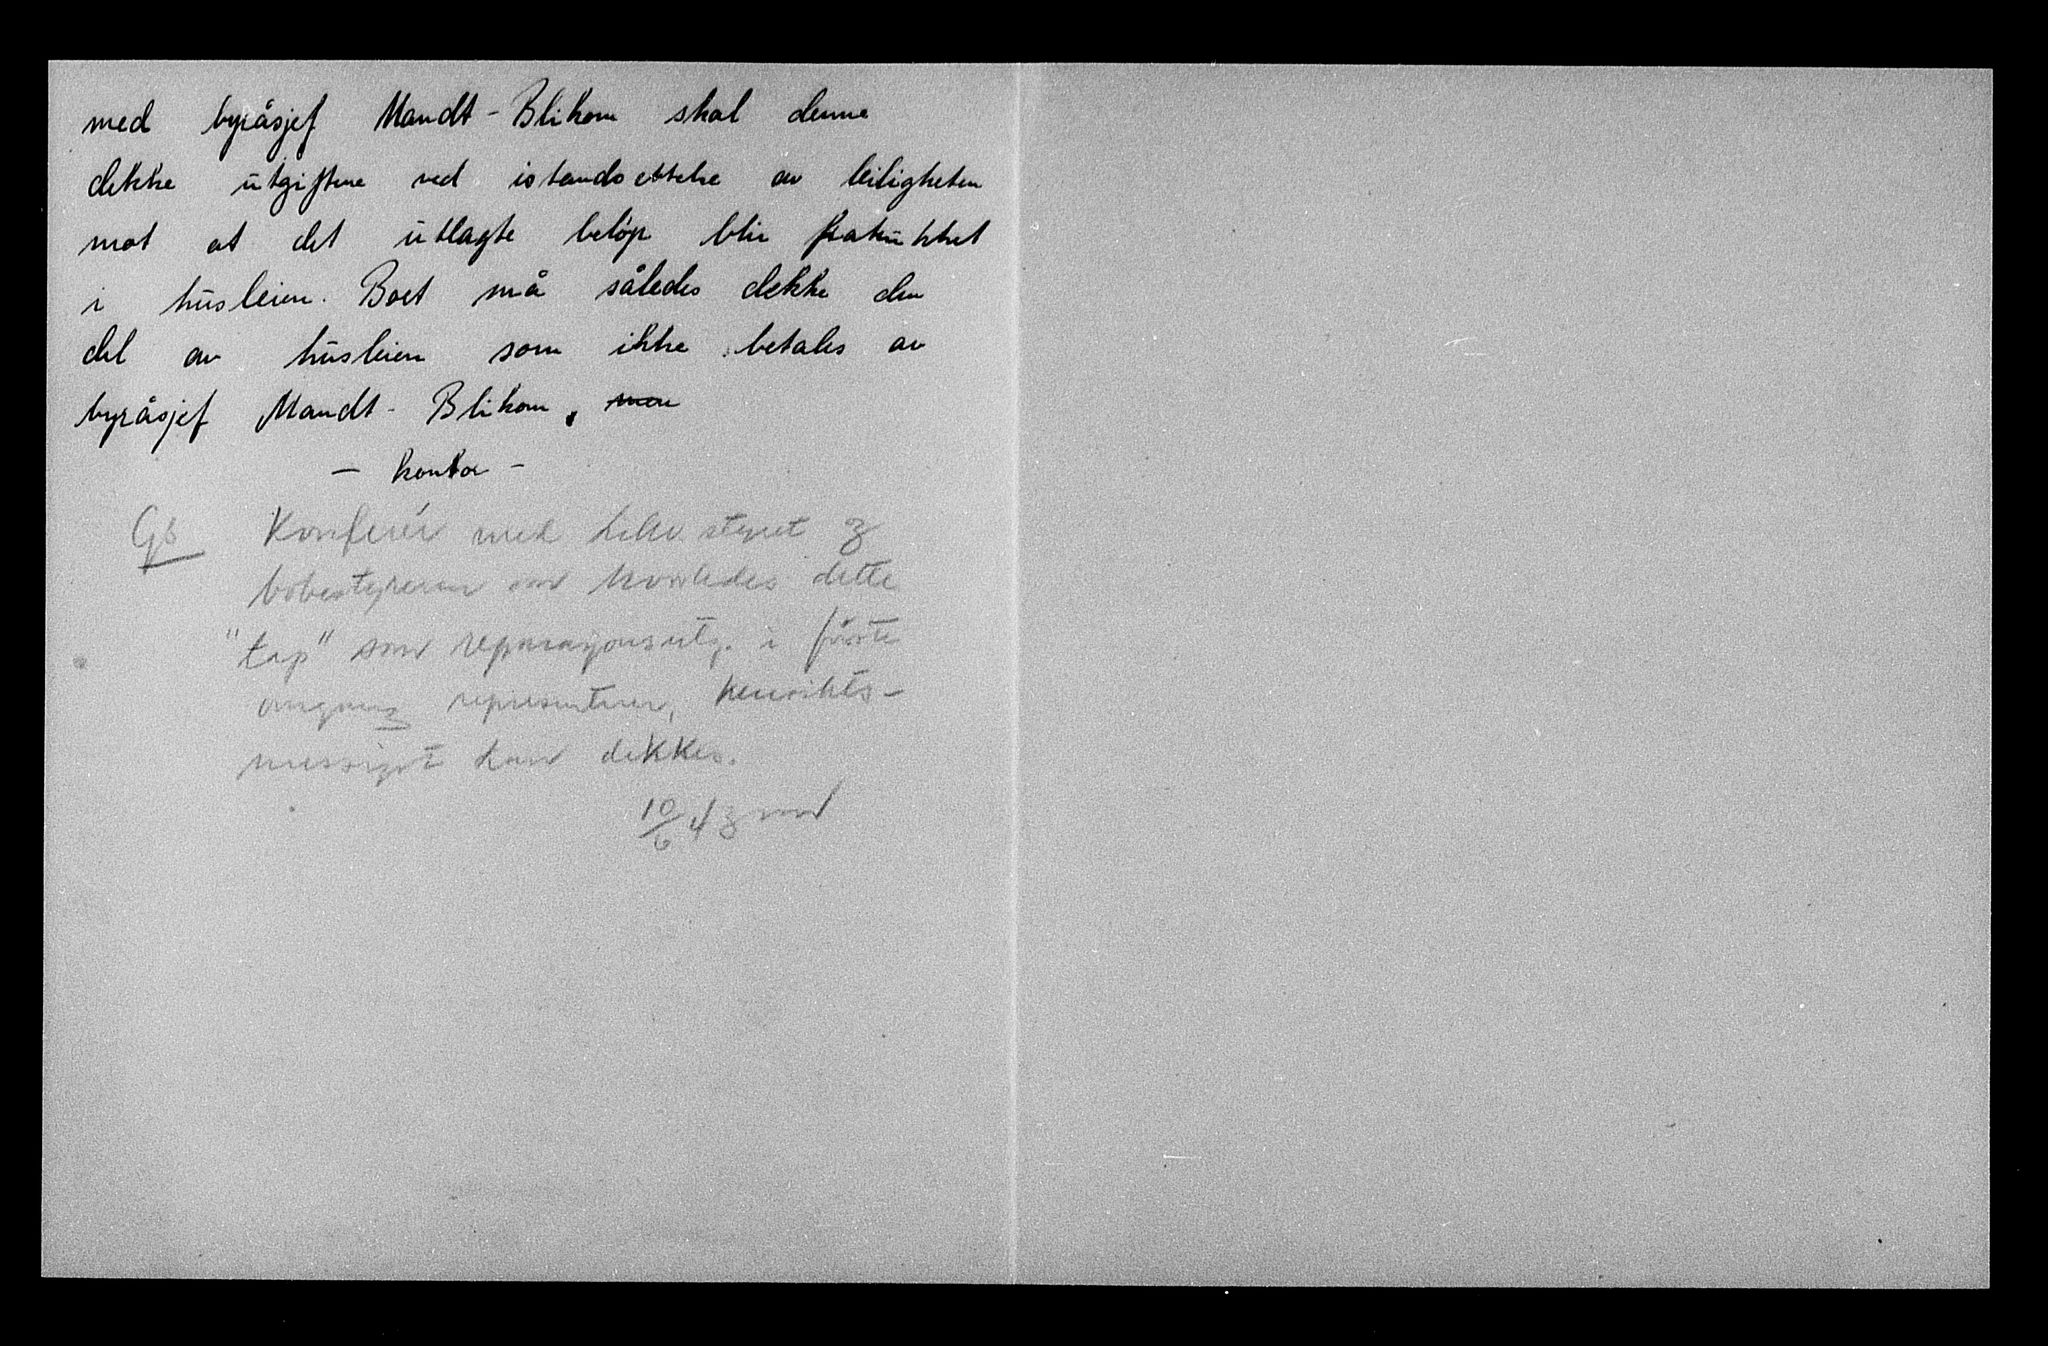 med byråsjef Mandt-Blikom skal denne
dekke utgiftene ved istandsettelse av leiligheten
mot at det utlagte beløp blir fratrukket
i husleien. Boet må således dekke den
del av husleien som ikke betales av
byråsjef Mandt-Blikom. men
- kontor -
Gs Konferér med styret og
bobestyreren om hvorledes dette
"tap" som reparasjonsutg. i første
omgang representerer, hensikts-
messigst kan dekkes.
10/6 43